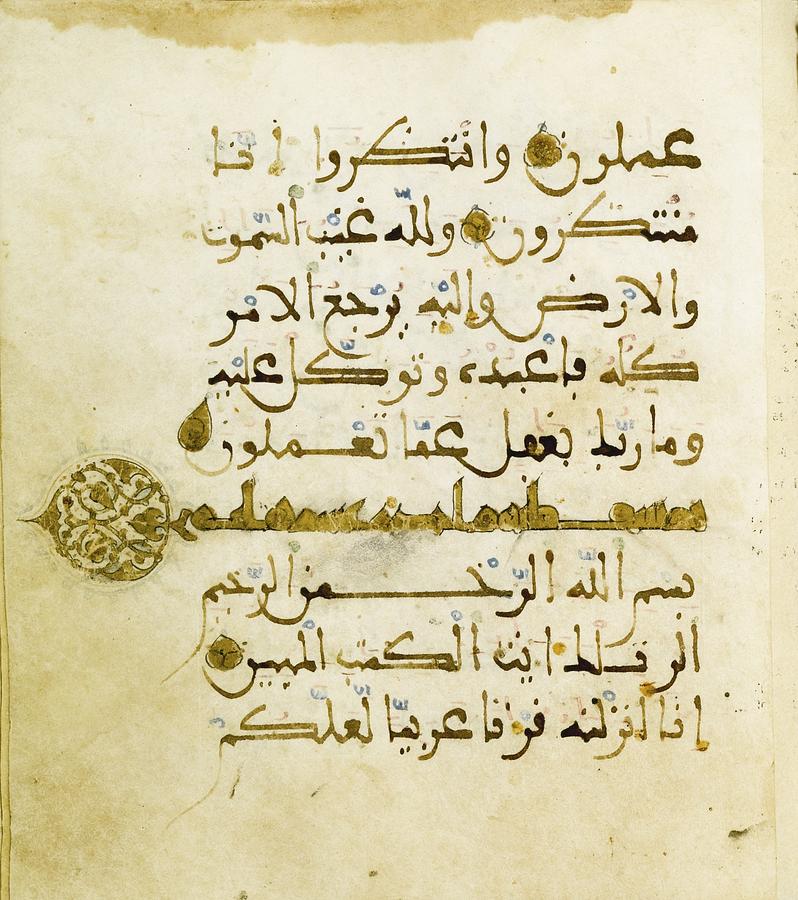 عملون وانتظروا انا
منتظرون ولله غيب السموت
والارض واليه يرجع الامر
كله فاعبده وتوكل عليه
وما ربك بغفل عما تعملون
بسم الله الرحمن الرحيم
الر تلك ايت الكتب المبين
انا انزلنه قرانا عربيا لعلكم